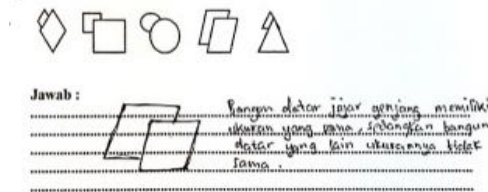 Jawab :
Bangun datar jajar genjang memiliki
ukuran yang sama, sedangkan bangun
datar yang lain ukurannya tidak
sama.